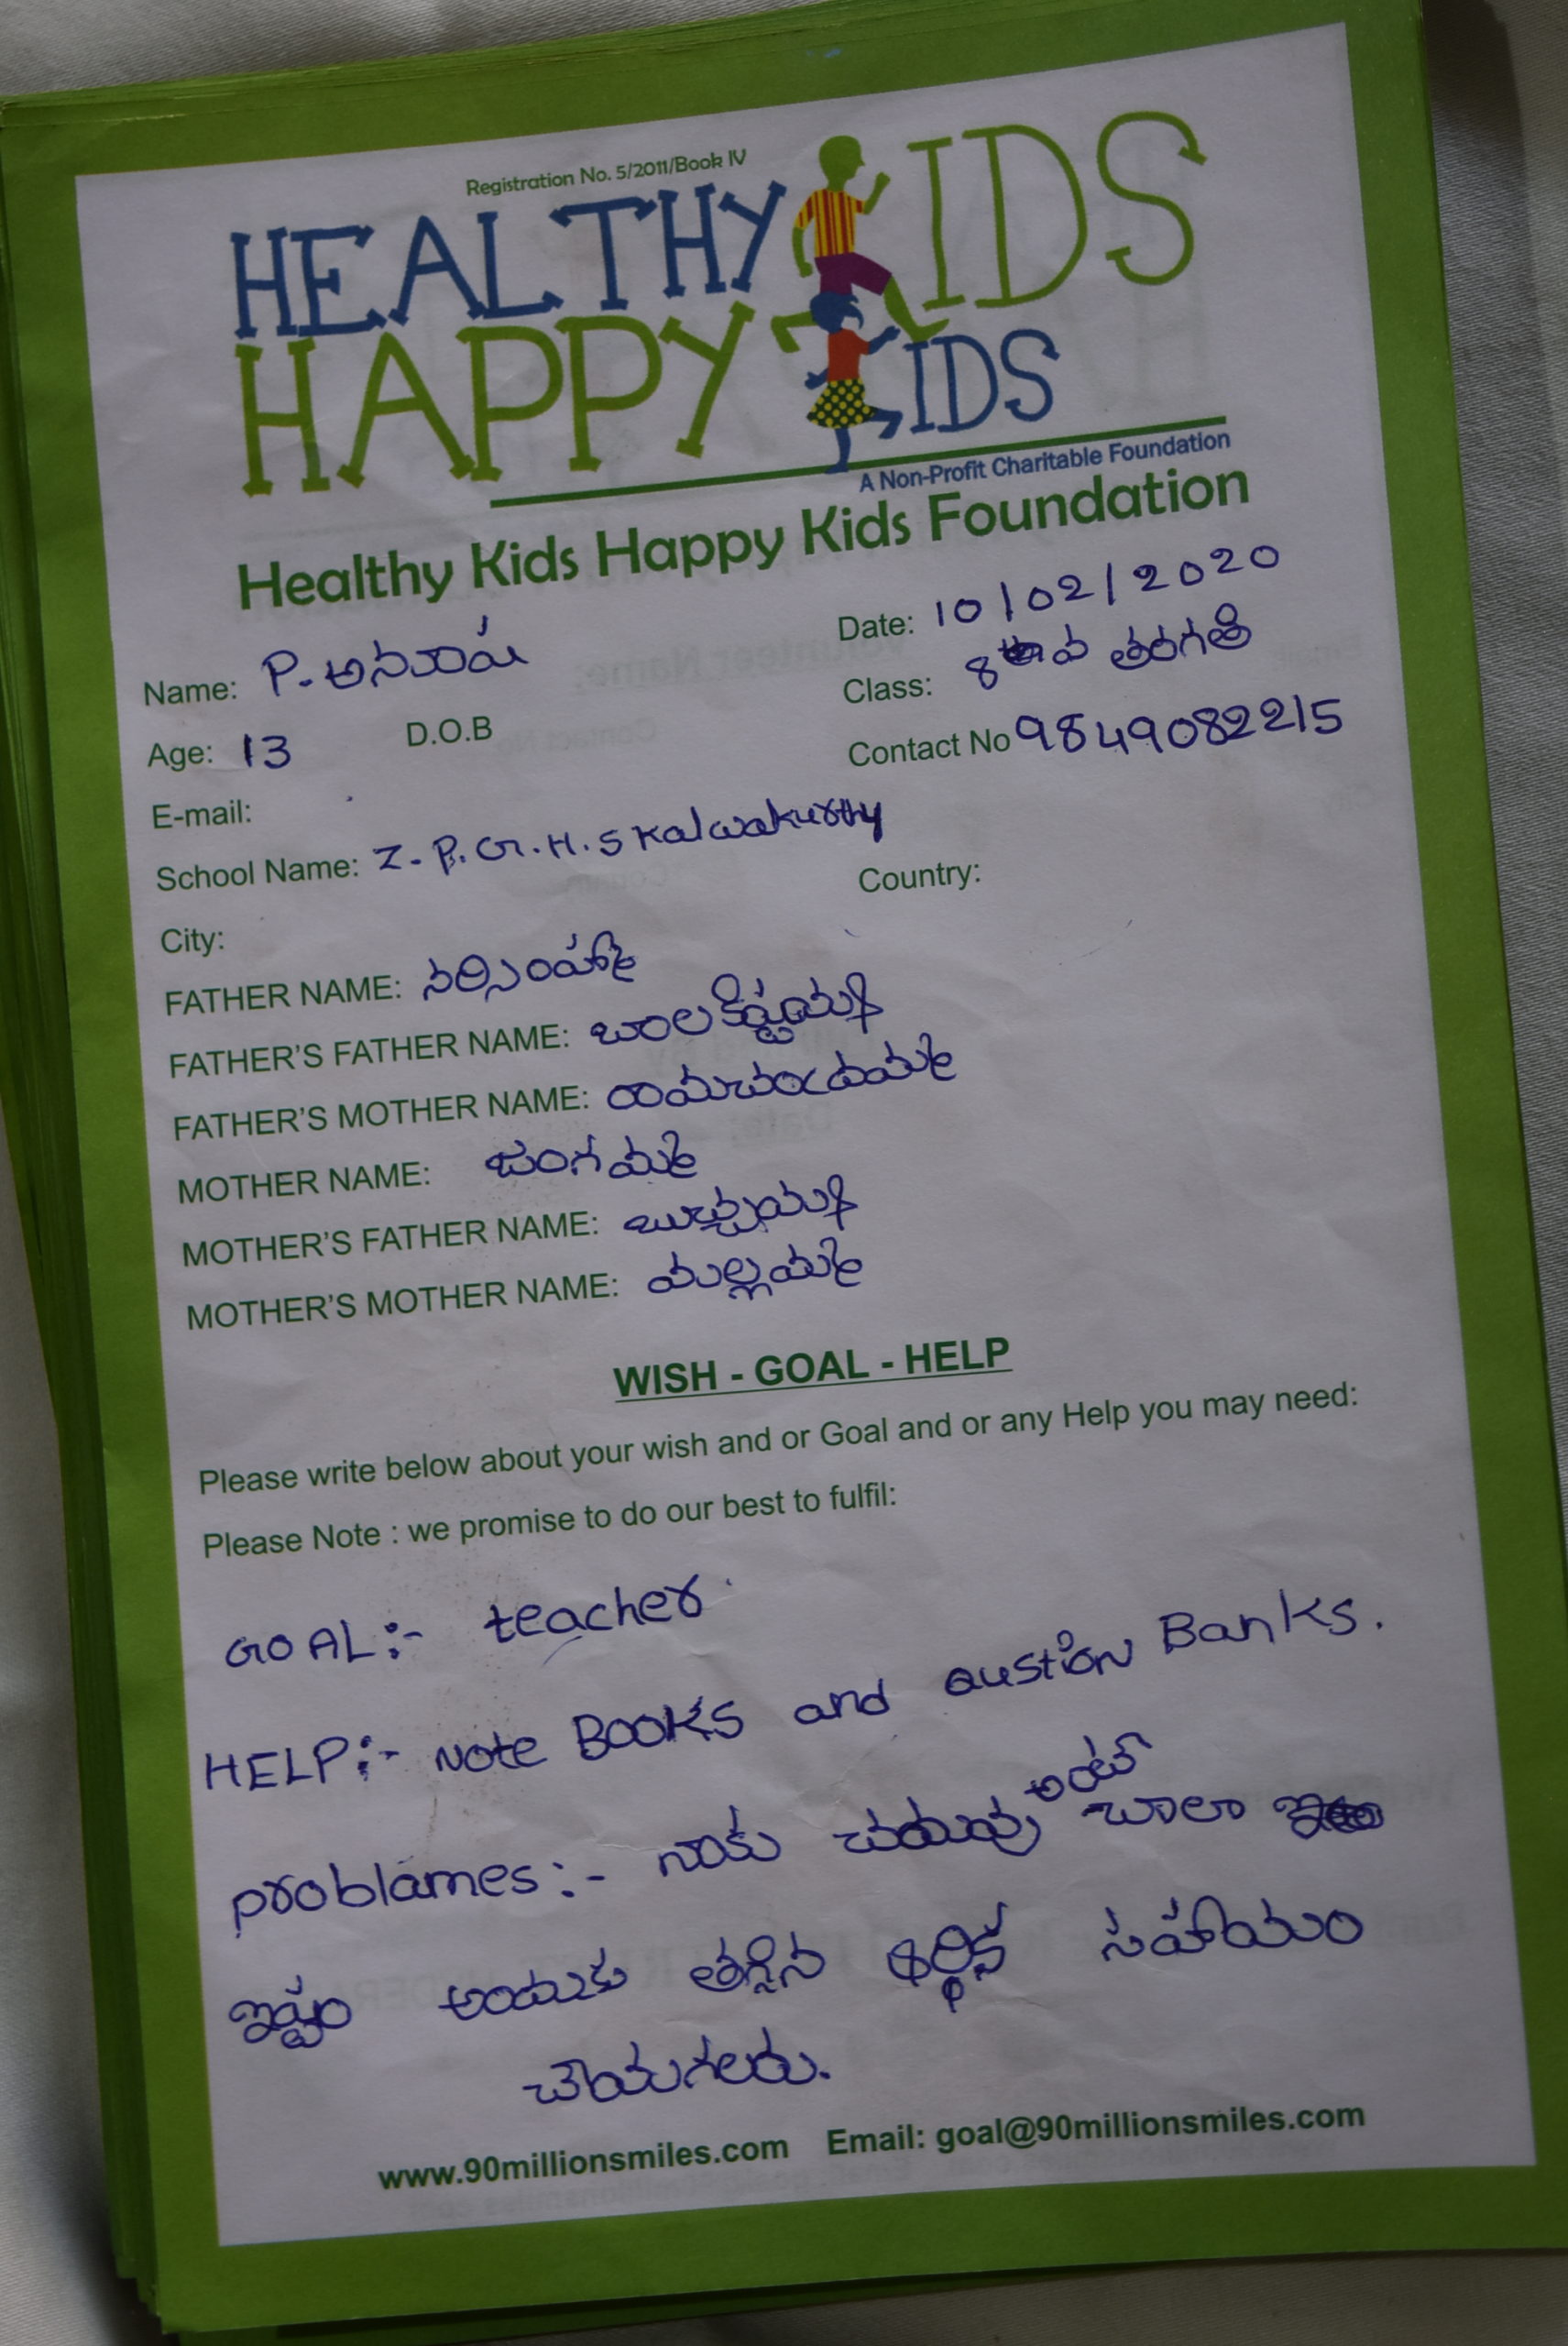 Registration No. 5/2011/Book IV
HEALTHY KIDS
HAPPY KIDS
A Non-Profit Charitable Foundation
Healthy Kids Happy Kids Foundation
Date: 10/02/2020
Name: P. అనూష
Class: 8వ తరగతి
Age: 13 D.O.B
Contact No 9849082215
E-mail:
School Name: Z.P.G.H.S Kalwakurthy
City: Country:
FATHER NAME: నర్సింహ్మ
FATHER'S FATHER NAME: బాలకిష్టయ్య
FATHER'S MOTHER NAME: రామచంద్రమ్మ
MOTHER NAME: జంగమ్మ
MOTHER'S FATHER NAME: బుచ్చయ్య
MOTHER'S MOTHER NAME: మల్లమ్మ
WISH - GOAL - HELP
Please write below about your wish and or Goal and or any Help you may need:
Please Note : we promise to do our best to fulfil:
GOAL:- teacher
HELP:- Note BOOKS and Qustion Banks.
problames:- నాకు చదువు అంటే చాలా
ఇష్టం అందుకు తగ్గిన ఆర్థిక సహాయం
చేయగలరు.
www.90millionsmiles.com Email: goal@90millionsmiles.com